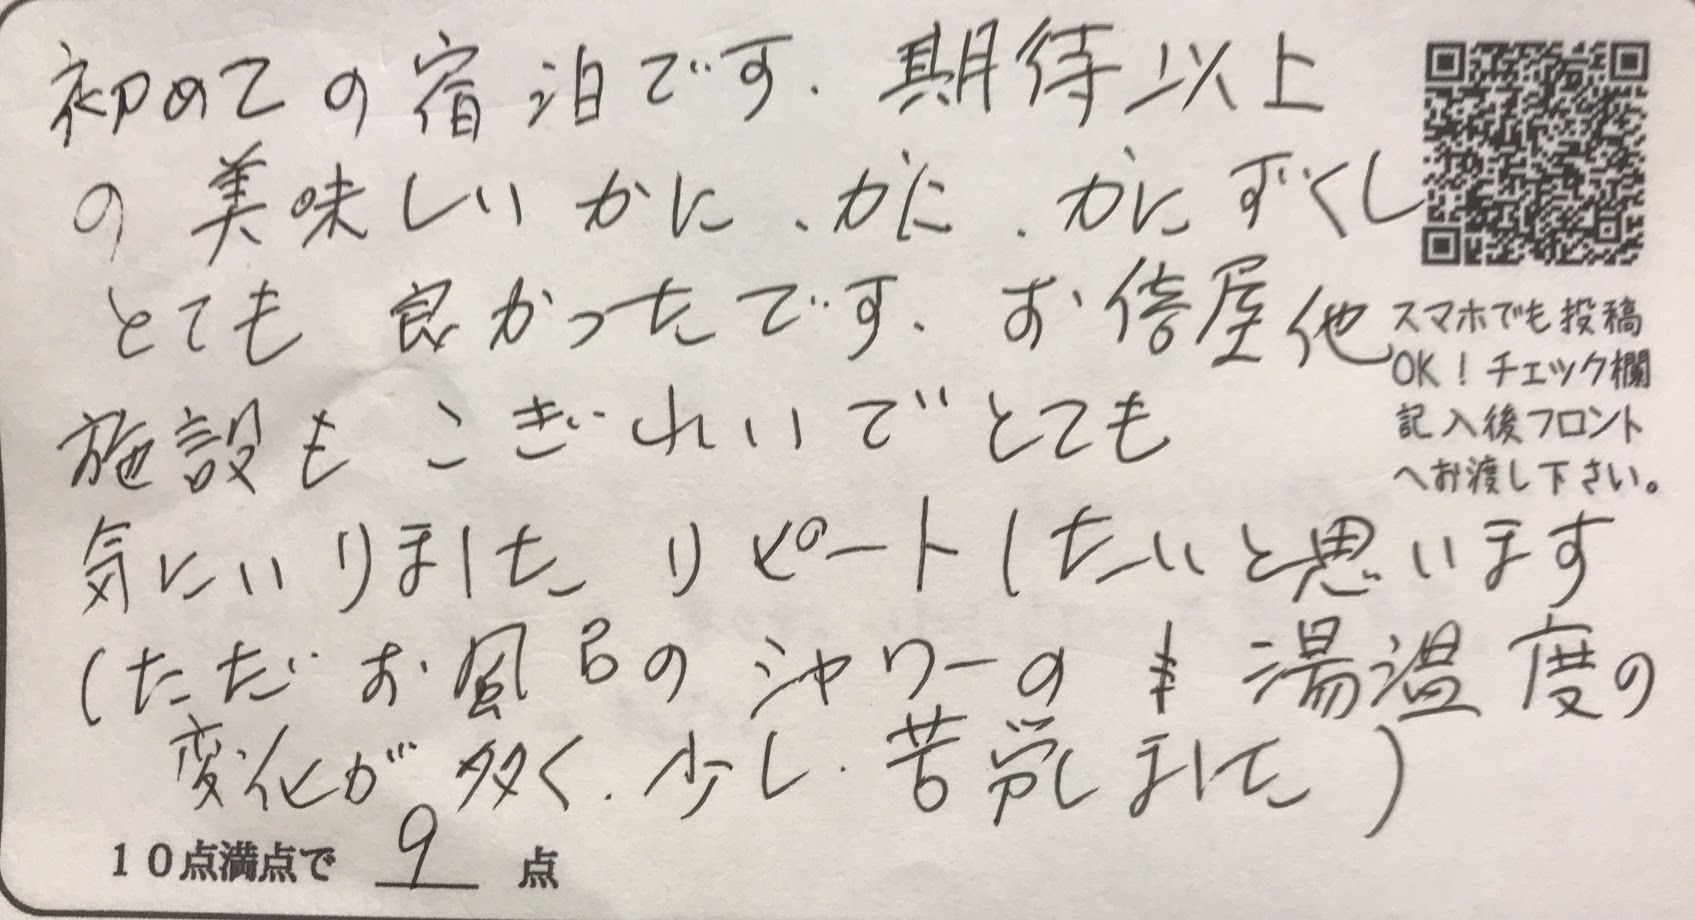 初めての宿泊です. 期待以上
の美味しいかに、かに、かにずくし
とても良かったです. お倍屋他
施設もこぎれいでとても
気にいりました リピートしたいと思います
(ただお風呂のシャワーの 湯温度の
変化が多く. 少し. 苦労しました)
スマホでも投稿
OK！チェック欄
記入後フロント
へお渡し下さい。
10点満点で 9 点